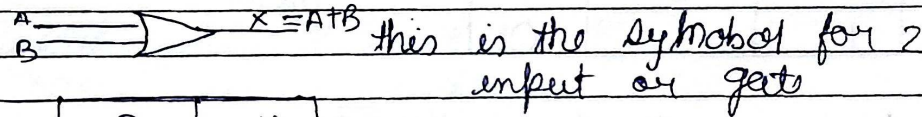 A
B
X = A+B
this is the symobol for 2
input or gate